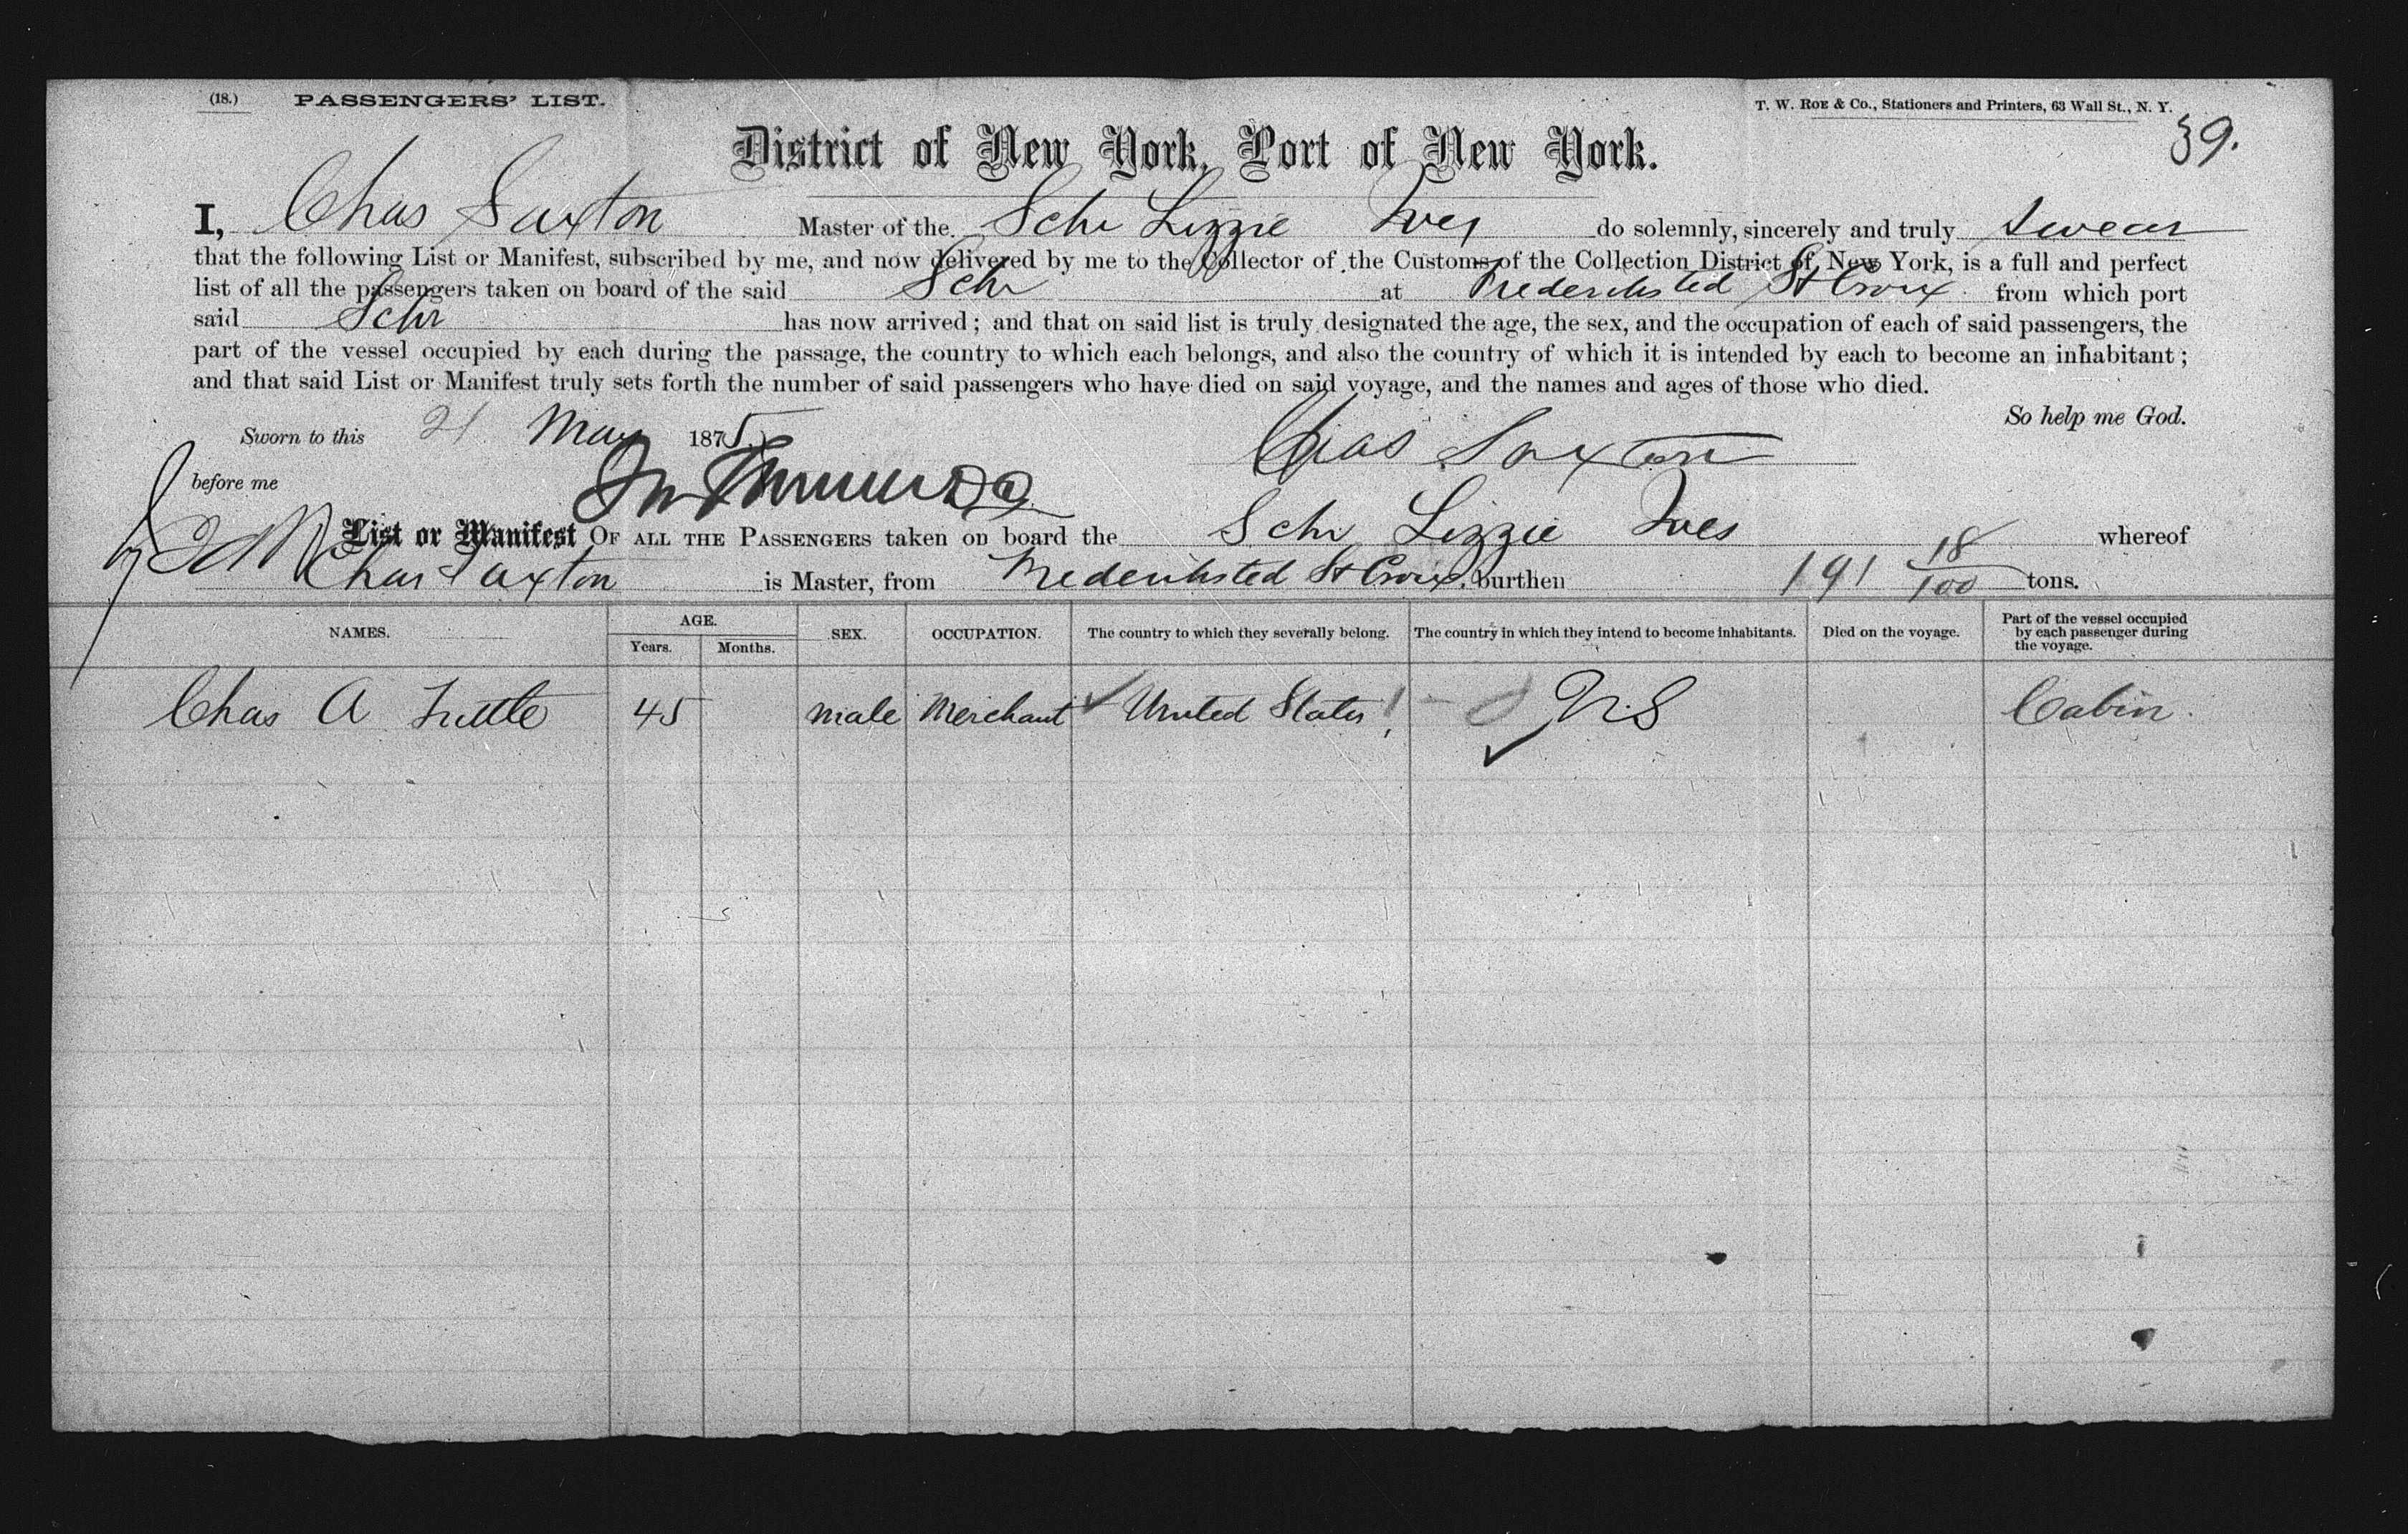 (18.) PASSENGERS' LIST. T. W. ROE & Co., Stationers and Printers, 63 Wall St., N. Y.
District of New York, Port of New York. 39.
I, Chas Saxton Master of the Schr Lizzie Ives do solemnly, sincerely and truly swear
that the following List or Manifest, subscribed by me, and now delivered by me to the Collector of the Customs of the Collection District of New York, is a full and perfect
list of all the passengers taken on board of the said Schr at Frederiksted St Croix from which port
said Schr has now arrived; and that on said list is truly designated the age, the sex, and the occupation of each of said passengers, the
part of the vessel occupied by each during the passage, the country to which each belongs, and also the country of which it is intended by each to become an inhabitant;
and that said List or Manifest truly sets forth the number of said passengers who have died on said voyage, and the names and ages of those who died.
So help me God.
Sworn to this 21 May 1875.
Chas Saxton
before me
List or Manifest OF ALL THE PASSENGERS taken on board the Schr Lizzie Ives whereof
Chas Saxton is Master, from Frederiksted St Croix, burthen 191 18/100 tons.
NAMES. AGE. Years. Months. SEX. OCCUPATION. The country to which they severally belong. The country in which they intend to become inhabitants. Died on the voyage. Part of the vessel occupied by each passenger during the voyage.
Chas A Tuttle 45 male Merchant United States U.S Cabin.